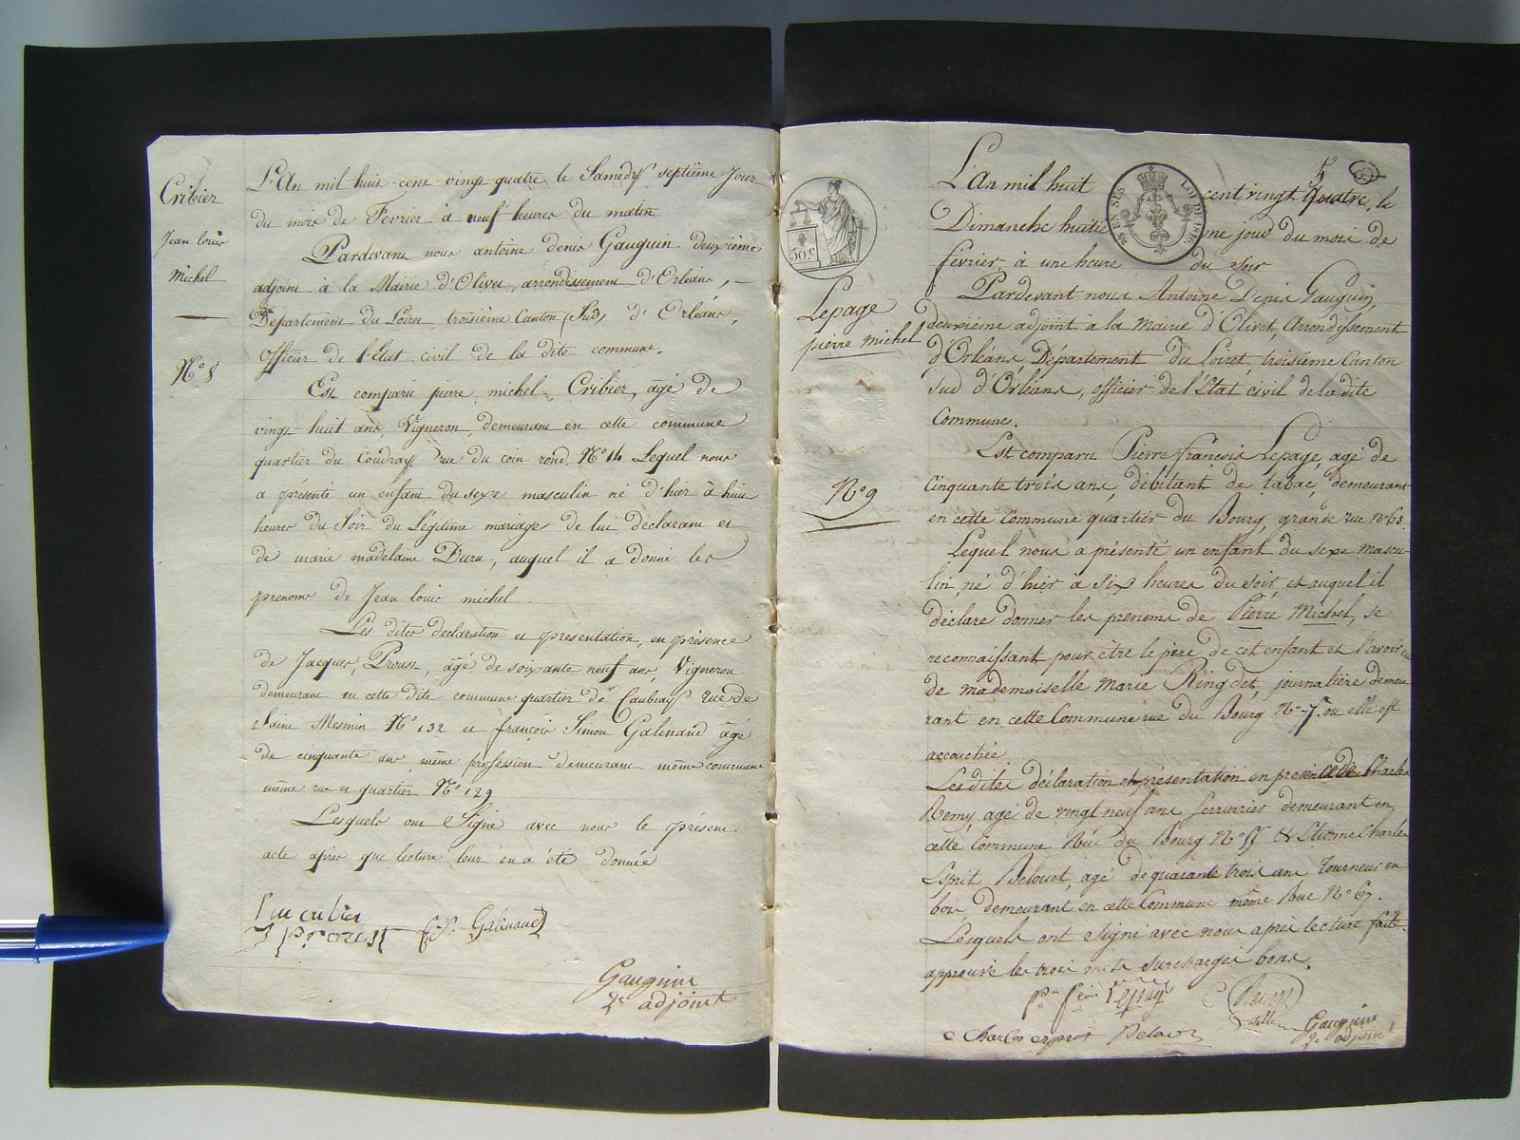 Cribier
Jean louis
michel
N° 8
L'An mil huit cent vingt quatre le Samedy septième Jour
du mois de Fevrier à neuf heures du matin
Pardevant nous antoine denis Gauguin deuxième
adjoint à la Mairie d'Olivet, arrondissement d'Orléans,
Département du Loiret troisième Canton (Sud) d'Orléans,
Officier de l'Etat civil de la dite commune.
Est comparu pierre michel Cribier, âgé de
vingt huit ans, Vigneron, demeurant en cette commune
quartier du Coudray rue du coin rond N° 14 Lequel nous
a présenté un enfant du sexe masculin né d'hier à huit
heures du Soir du Légitime mariage de lui déclarant et
de marie madelaine Duru, auquel il a donné les
prenoms de Jean louis michel
Les dites declaration et presentation, en présence
de Jacques Proust, âgé de soixante neuf ans, Vigneron
demeurant en cette dite commune quartier de Caubray rue de
Saint Mesmin N° 132 et françois Simon Galinand âgé
de cinquante ans même profession demeurant même commune
même rue et quartier N° 129
Lesquels ont Signé avec nous le présent
acte après que lecture leur en a été donnée
cribier
J Proust F. S. Galinand
Gauguin
2e adjoint
5
50c
Lepage
pierre michel
N° 9
L'An mil huit cent vingt quatre, le
Dimanche huitième jour du mois de
février à une heure du soir
Pardevant nous Antoine Denis Gauguin,
deuxième adjoint à la Mairie d'Olivet, Arrondissement
d'Orléans Département du Loiret troisième Canton
Sud d'Orléans, officier de l'Etat civil de la dite
Commune.
Est comparu Pierre françois Lepage, agé de
Cinquante trois ans, débitant de tabac, demeurant
en cette Commune quartier du Bourg, grande rue N° 63
Lequel nous a présenté un enfant du sexe mascu-
lin, né d'hier à six heures du soir, et auquel il
déclare donner les prenoms de Pierre Michel, se
reconnaissant pour être le père de cet enfant et l'avoir eu
de mademoiselle Marie Ringdet, journalière demeu
rant en cette Commune rue du Bourg N° 75 ou elle est
accouchée.
Les dites déclaration et présentation en presence de Charles
Remy agé de vingt neuf ans serrurier demeurant en
cette Commune Rue du Bourg N° 55 & Etienne Charles
Esprit Belouet, agé de quarante trois ans Tourneur en
bois, demeurant en cette Commune même Rue N° 67.
Lesquels ont signé avec nous après lecture faite.
approuvé les trois mots surchargés bons.
Lepage C Remy
Charles esprit Gauguin
2e adjoint